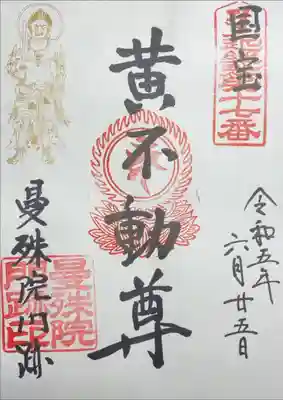 国宝
令和五年
六月廿五日
黄不動尊
曼殊院門跡
曼殊院
門跡印